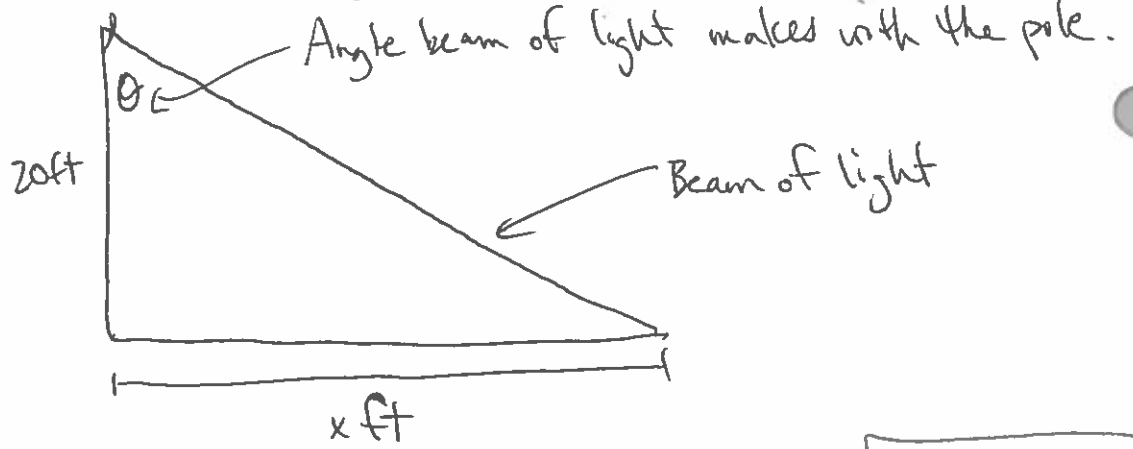 Angle beam of light makes with the pole.
θ
20ft
Beam of light
x ft